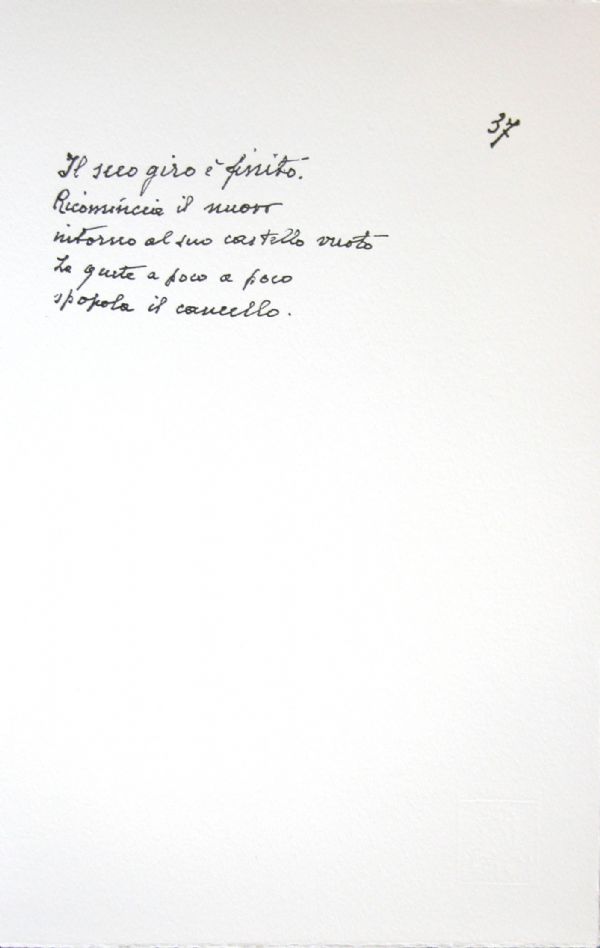 37
Il suo giro è finito.
Ricomincia il nuovo
intorno al suo castello vuoto
La gente a poco a poco
spopola il cancello.